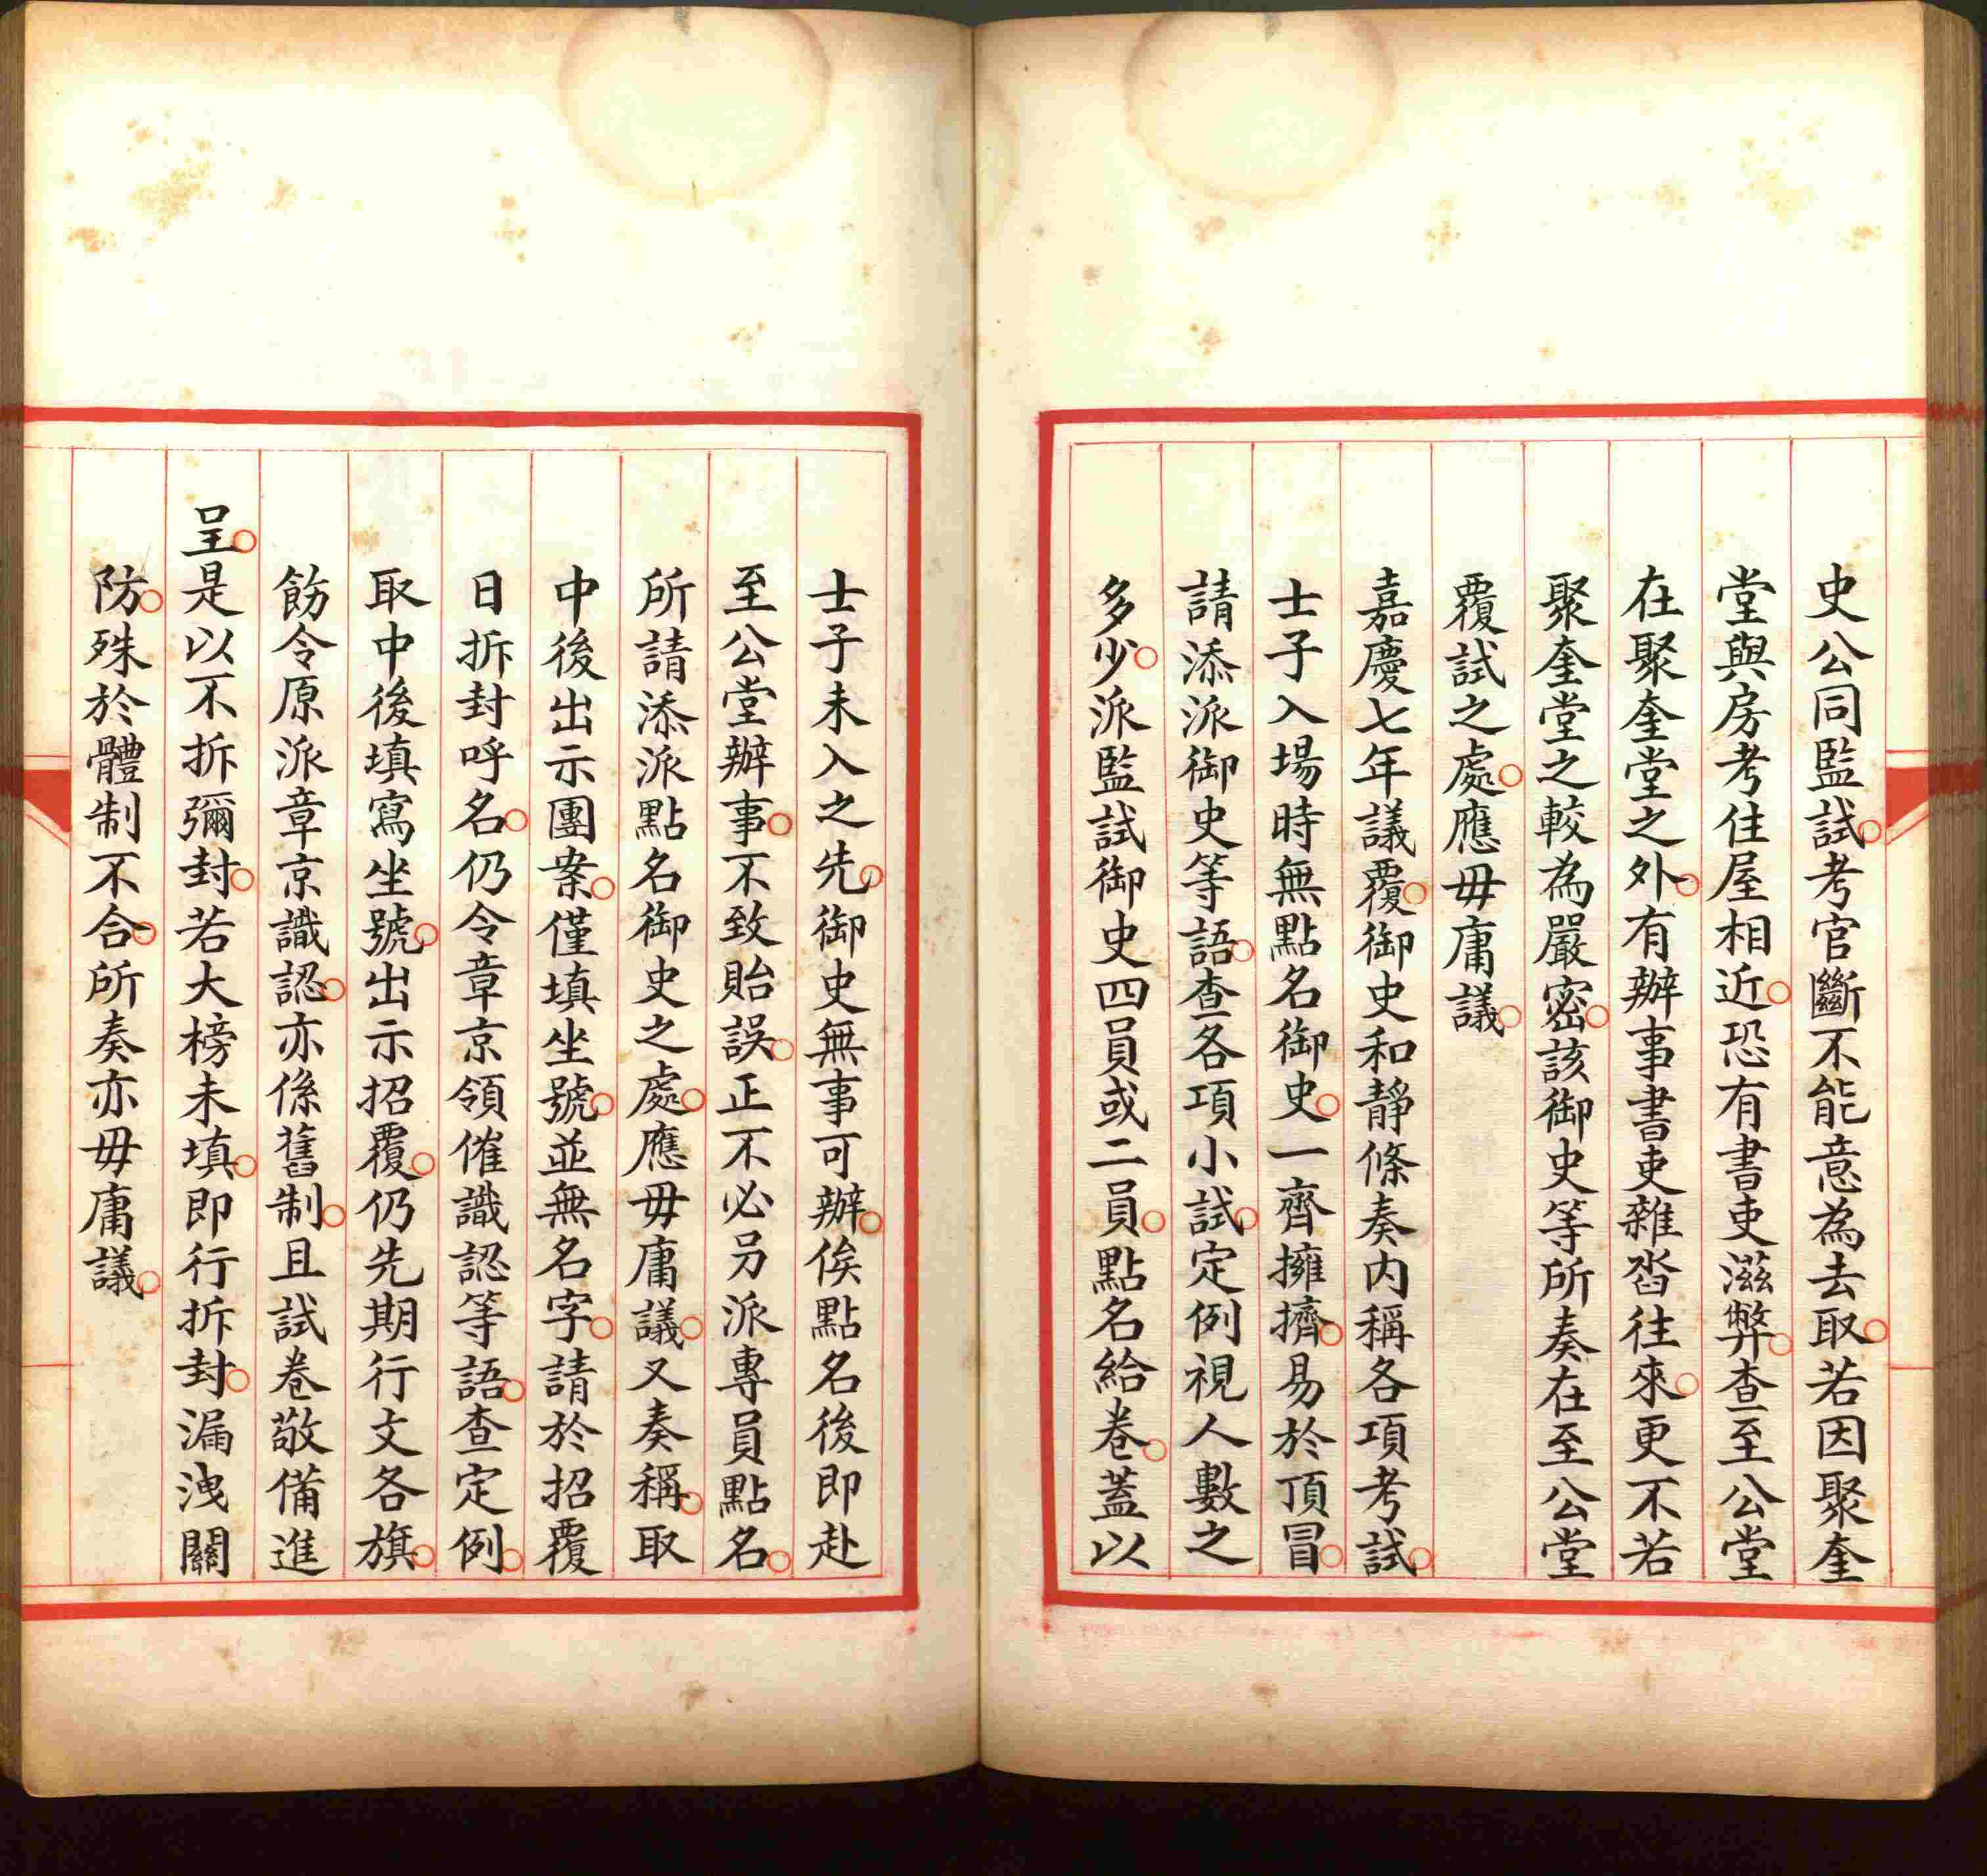 史公同監試。考官斷不能意為去取。若因聚奎
堂與房考住屋相近。恐有書吏滋弊。查至公堂
在聚奎堂之外。有辦事書吏雜沓往來。更不若
聚奎堂之較為嚴密。該御史等所奏在至公堂
覆試之處。應毋庸議。
嘉慶七年議覆。御史和靜條奏内稱各項考試。
士子入場時無點名御史。一齊擁擠。易於頂冒。
請添派御史等語。查各項小試。定例視人數之
多少。派監試御史四員或二員。點名給卷。蓋以
士子未入之先。御史無事可辦。俟點名後即赴
至公堂辦事。不致貽誤。正不必另派專員點名。
所請添派點名御史之處。應毋庸議。又奏稱。取
中後出示團案。僅填坐號。並無名字。請於招覆
日拆封呼名。仍令章京領催識認等語。查定例。
取中後填寫坐號。出示招覆。仍先期行文各旗。
飭令原派章京識認。亦係舊制。且試卷敬備進
呈。是以不拆彌封。若大榜未填。即行拆封。漏洩關
防。殊於體制不合。所奏亦毋庸議。